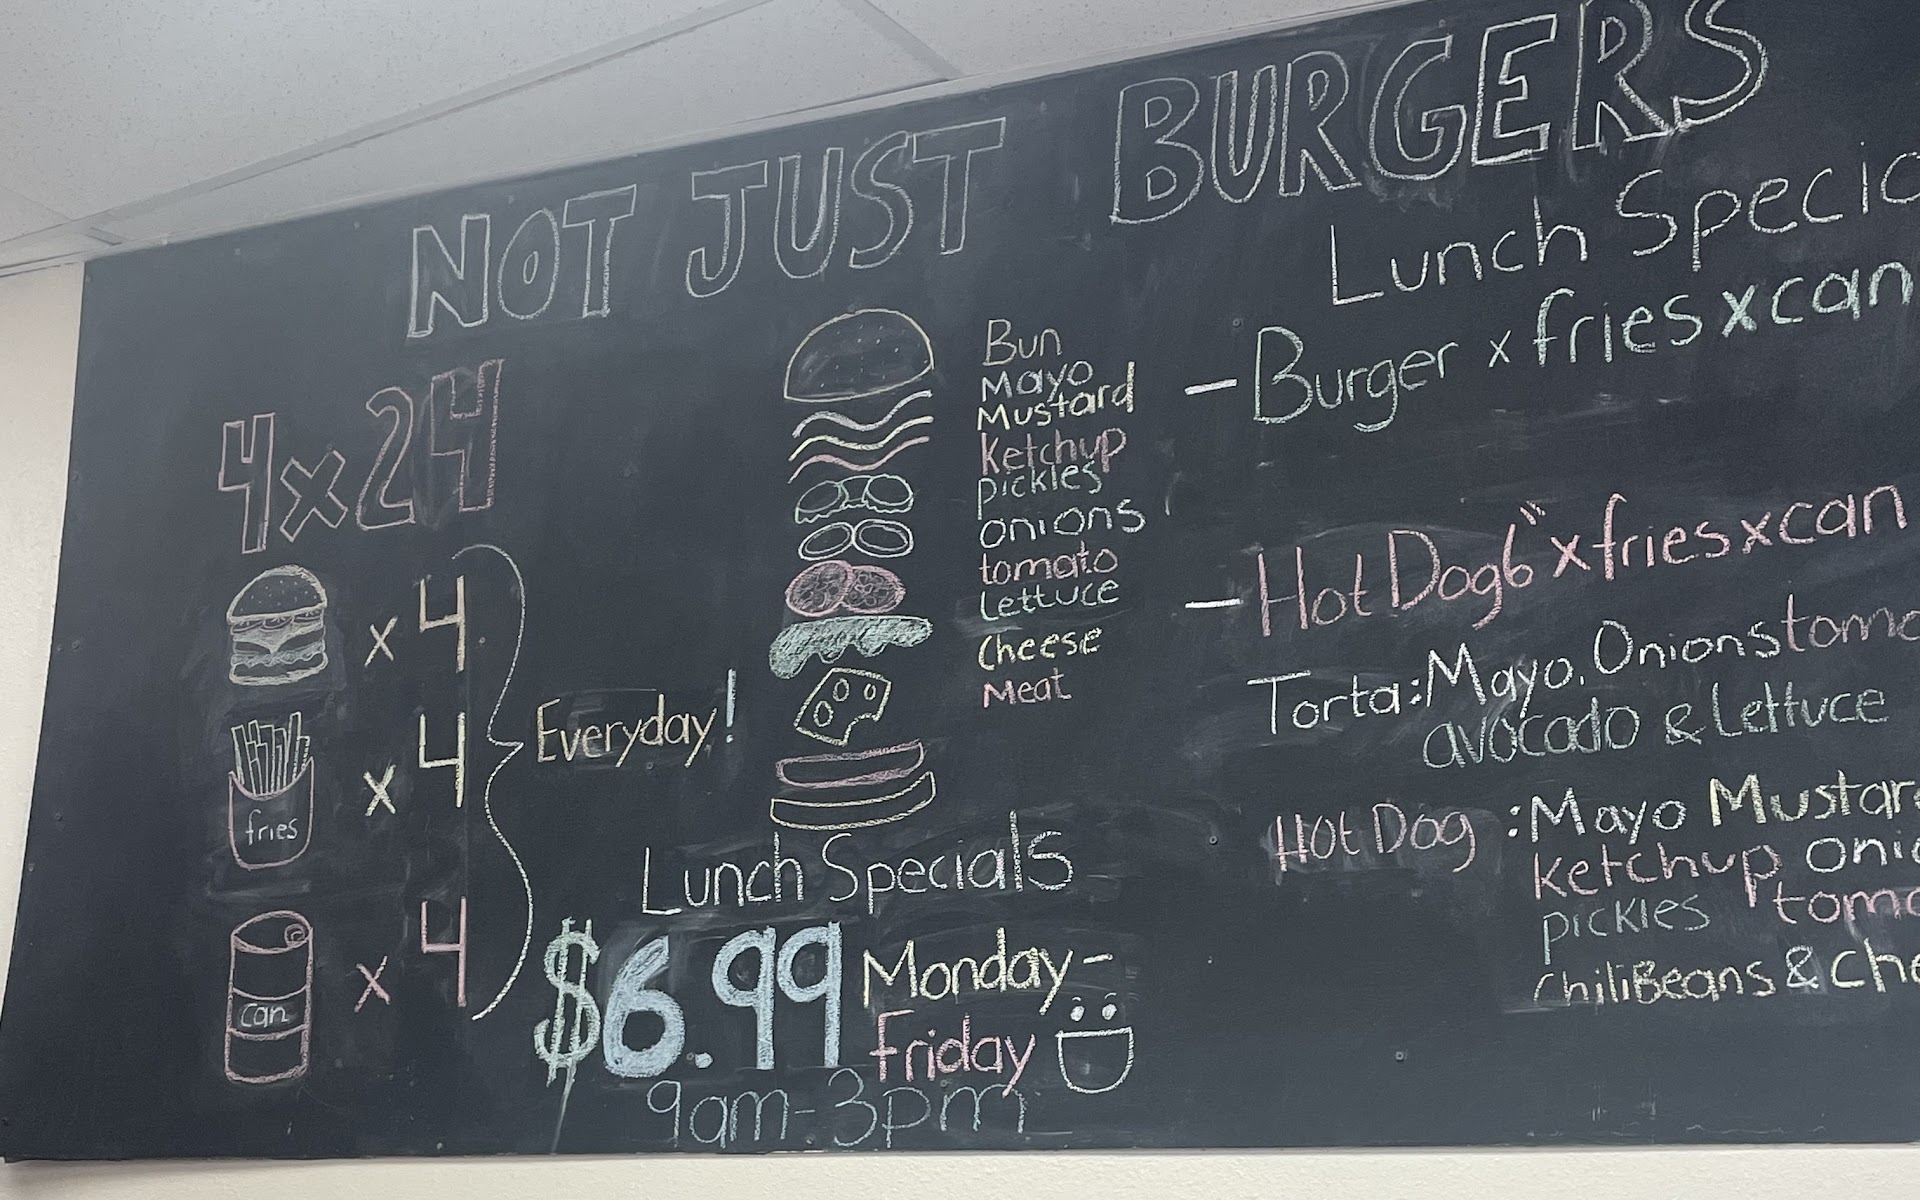 NOT JUST BURGERS
4x24
x 4
x 4
fries
x 4
can
Everyday!
Bun
Mayo
Mustard
Ketchup
pickles
onions
tomato
Lettuce
Cheese
Meat
Lunch Specials
$6.99 Monday-
Friday
9am-3pm
Lunch Specia
- Burger x fries x can
- Hot Dog 6" x fries x can
Torta: Mayo, Onions toma
avocado & Lettuce
Hot Dog : Mayo Mustar
Ketchup oni
pickles toma
Chili Beans & Che